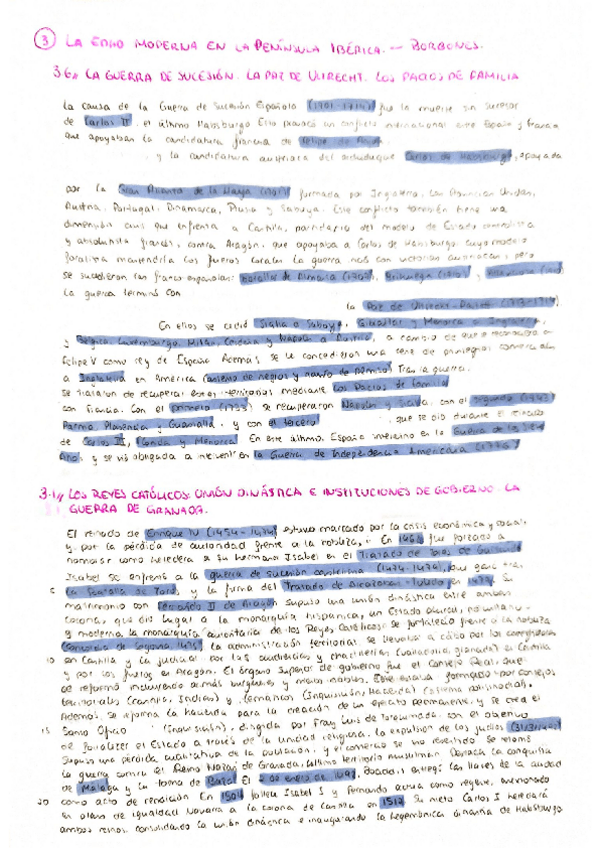 3 LA EDAD MODERNA EN LA PENÍNSULA IBÉRICA. — BORBONES.
3.6 LA GUERRA DE SUCESIÓN. LA PAZ DE UTRECHT. LOS PACTOS DE FAMILIA
La causa de la Guerra de Sucesión Española (1701-1714) fue la muerte sin sucesor
de Carlos II, el último Habsburgo. Esto provocó un conflicto internacional entre España y Francia
que apoyaban la candidatura francesa de Felipe de Anjou,
y la candidatura austriaca del archiduque Carlos de Habsburgo, apoyada
por la Gran Alianza de la Haya (1701) formada por Inglaterra, las Provincias Unidas,
Austria, Portugal, Dinamarca, Prusia y Saboya. Este conflicto también tiene una
dimensión civil que enfrenta a Castilla, partidaria del modelo de Estado centralista
y absolutista francés, contra Aragón, que apoyaba a Carlos de Habsburgo cuyo modelo
foralista mantendría los fueros locales. La guerra inició con victorias austriacas, pero
se sucedieron las franco españolas: Batallas de Almansa (1707), Brihuega (1710) y
La guerra terminó con
la Paz de Utrecht-Rastatt (1713-1714).
En ellos se cedió Sicilia a Saboya, Gibraltar y Menorca a Inglaterra,
y Bélgica, Luxemburgo, Milán, Cerdeña y Nápoles a Austria, a cambio de que reconociesen a
Felipe V como rey de España. Además, se le concedieron una serie de privilegios comerciales
a Inglaterra en América (asiento de negros y navío de permiso). Tras la guerra,
se trataron de recuperar estos territorios mediante los Pactos de Familia
con Francia. Con el primero (1733) se recuperaron Nápoles y Sicilia, con el segundo (1743)
Parma, Plasencia y Guastalla, y con el tercero, que se dio durante el reinado
de Carlos III, Florida y Menorca. En este último, España intervino en la Guerra de los Siete
Años, y se vio obligada a intervenir en la Guerra de Independencia Americana (1776)
3.1 LOS REYES CATÓLICOS: UNIÓN DINÁSTICA E INSTITUCIONES DE GOBIERNO. LA
GUERRA DE GRANADA.
El reinado de Enrique IV (1454-1474) estuvo marcado por la crisis económica y social
y por la pérdida de autoridad frente a la nobleza. En 1468 fue forzado a
nombrar como heredera a su hermana Isabel en el Tratado de Toros de Guisando
Isabel se enfrentó a la guerra de sucesión castellana (1474-1479), que ganó tras
5 la Batalla de Toro, y la firma del Tratado de Alcazobas-Toledo en 1479. Su
matrimonio con Fernando II de Aragón supuso una unión dinástica entre ambas
coronas, que dio lugar a la monarquía hispánica, un Estado plural, no unitario
y moderno, la monarquía autoritaria de los Reyes Católicos se fortaleció frente a la nobleza
Concordia de Segovia 1475), la administración territorial se llevaba a cabo por los corregidores
10 en Castilla y la judicial por las audiencias y chancillerías (Valladolid, Granada) en Castilla
y por los fueros en Aragón. El órgano superior de gobierno fue el Consejo Real, que
se reformó incluyendo a más burgueses y menos nobles. Este estaba formado por consejos
territoriales (Aragón, Indias) y temáticos (Inquisición, Hacienda) (sistema polisinodial).
Además, se reforma la hacienda para la creación de un ejército permanente, y se crea el
15 Santo Oficio (Inquisición), dirigida por Fray Luis de Torquemada, con el objetivo
de fortalecer el Estado a través de la unidad religiosa. La expulsión de los judíos (31/3/1492)
supuso una pérdida cualitativa de la población, y el comercio se vio resentido. Se retomó
la guerra contra el Reino Nazarí de Granada, último territorio musulmán. Destaca la conquista
de Málaga y la toma de Baza. El 2 de enero de 1492, Boabdil entregó las llaves de la ciudad
20 como acto de rendición. En 1504 fallece Isabel I y Fernando actúa como regente, anexionando
en plano de igualdad Navarra a la corona de Castilla en 1512. Su nieto Carlos I heredará
ambos reinos, consolidando la unión dinástica e inaugurando la hegemónica dinastía de Habsburgo.